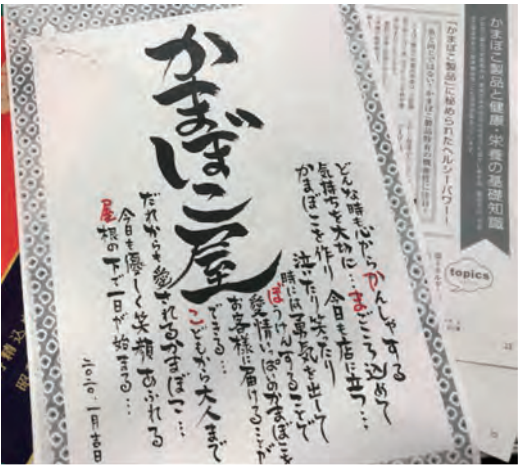 かまぼこ屋
どんな時も心からかんしゃする
気持ちを大切に…まごころ込めて
かまぼこを作り 今日も店に立つ…
泣いたり笑ったり
時には勇気を出して
ぼうけんすることで
愛情いっぱいのかまぼこを
お客様に届けることが
できる…
こどもから大人まで
だれからも愛されるかまぼこ…
今日も優しく笑顔あふれる
屋根の下で一日が始まる…
二〇二〇.一月吉日
かまぼこ製品と健康・栄養の基礎知識
「かまぼこ製品」に秘められたヘルシーパワー！
topics